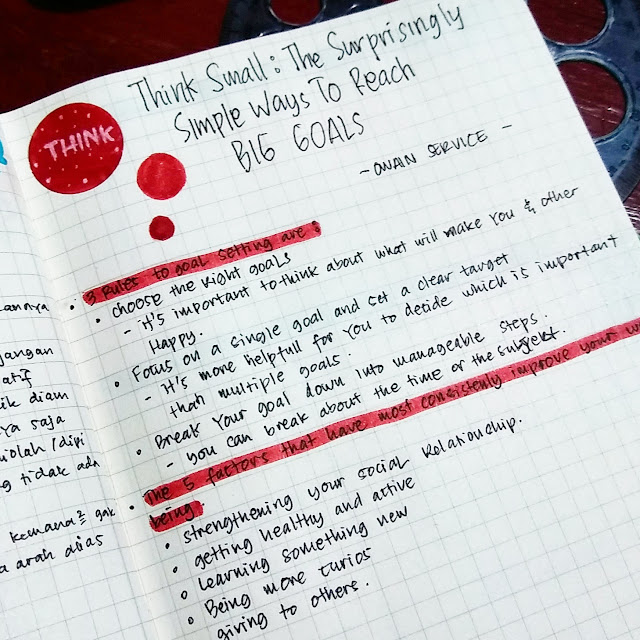 THINK
Think Small: The Surprisingly
Simple Ways To Reach
BIG GOALS
- OWAIN SERVICE -
3 Rules to goal setting are:
• choose the right goals
- it's important to think about what will make you & other
Happy.
• Focus on a single goal and set a clear target
- It's more helpfull for you to decide which is important
than multiple goals.
• Break your goal down into manageable steps.
- you can break about the time or the subject.
• The 5 factors that have most consistenly improve your w
being
• strengthening your social relationship.
• getting healthy and active
• Learning something new
• Being more curios
giving to others.
annya
jangan
atif
ik diam
ya saja
iolah/dipi
g tidak ada
kemana² gak
a arah dias